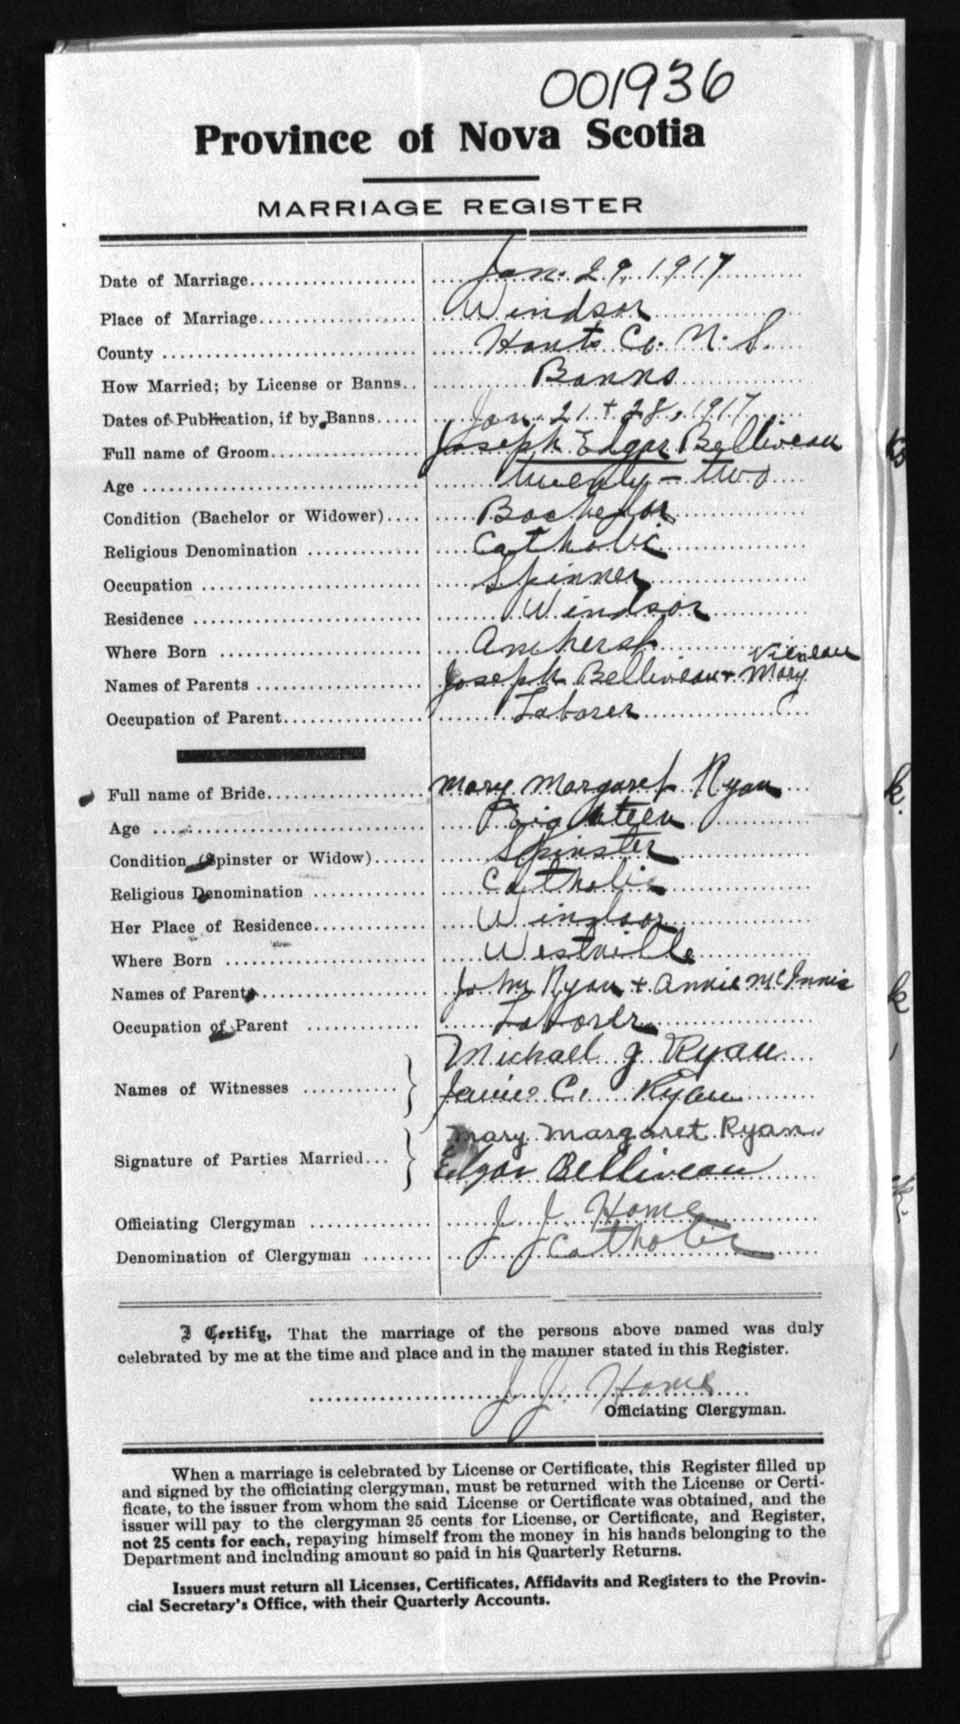 001936
Province of Nova Scotia
MARRIAGE REGISTER
Date of Marriage Jan. 29, 1917
Place of Marriage Windsor
County Hants Co. N. S.
How Married; by License or Banns Banns
Dates of Publication, if by Banns Jan. 21 + 28, 1917
Full name of Groom Joseph Edgar Belliveau
Age twenty-two
Condition (Bachelor or Widower) Bachelor
Religious Denomination Catholic
Occupation Spinner
Residence Windsor
Where Born Amherst
Names of Parents Joseph Belliveau + Mary Vieneau
Occupation of Parent Laborer
Full name of Bride Mary Margaret Ryan
Age Eighteen
Condition (Spinster or Widow) Spinster
Religious Denomination Catholic
Her Place of Residence Windsor
Where Born Westville
Names of Parents John Ryan + Annie McInnis
Occupation of Parent Laborer
Names of Witnesses Michael J Ryan
Janie C. Ryan
Signature of Parties Married Mary Margaret Ryan
Edgar Belliveau
Officiating Clergyman J J
Denomination of Clergyman Catholic
I Certify, That the marriage of the persons above named was duly
celebrated by me at the time and place and in the manner stated in this Register.
J J
Officiating Clergyman.
When a marriage is celebrated by License or Certificate, this Register filled up
and signed by the officiating clergyman, must be returned with the License or Certi-
ficate, to the issuer from whom the said License or Certificate was obtained, and the
issuer will pay to the clergyman 25 cents for License, or Certificate, and Register,
not 25 cents for each, repaying himself from the money in his hands belonging to the
Department and including amount so paid in his Quarterly Returns.
Issuers must return all Licenses, Certificates, Affidavits and Registers to the Provin-
cial Secretary's Office, with their Quarterly Accounts.